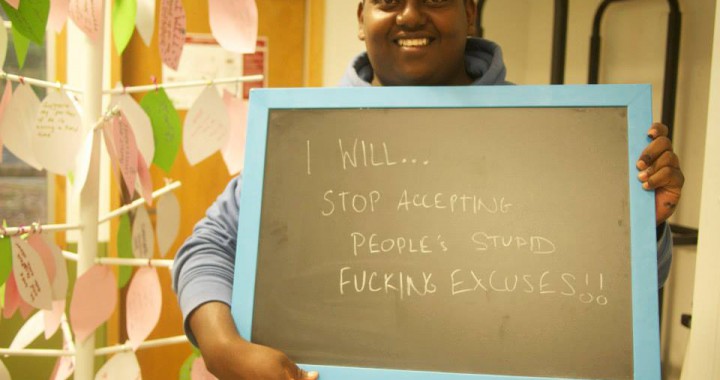 I WILL...
STOP ACCEPTING
PEOPLE'S STUPID
FUCKING EXCUSES!!